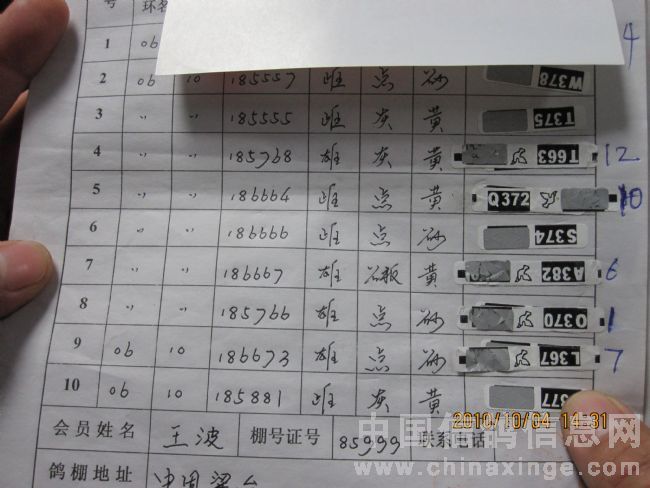 号 环名
1 06 4
2 06 10 185557 雌 点 砂 W378
3 〃 〃 185555 雌 灰 黄 T375
4 〃 〃 185768 雄 灰 黄 T663 12
5 〃 〃 186664 雌 点 黄 Q372 10
6 〃 〃 186666 雌 点 砂 S374
7 〃 〃 186667 雄 石板 黄 A382 6
8 〃 〃 185766 雄 点 砂 O370 1
9 06 10 186673 雄 点 砂 L367 7
10 06 10 185881 雌 灰 黄 377
2010/10/04 14:31
会员姓名 王波 棚号证号 85999 联系电话
中国信鸽信息网
鸽棚地址
www.chinaxinge.com